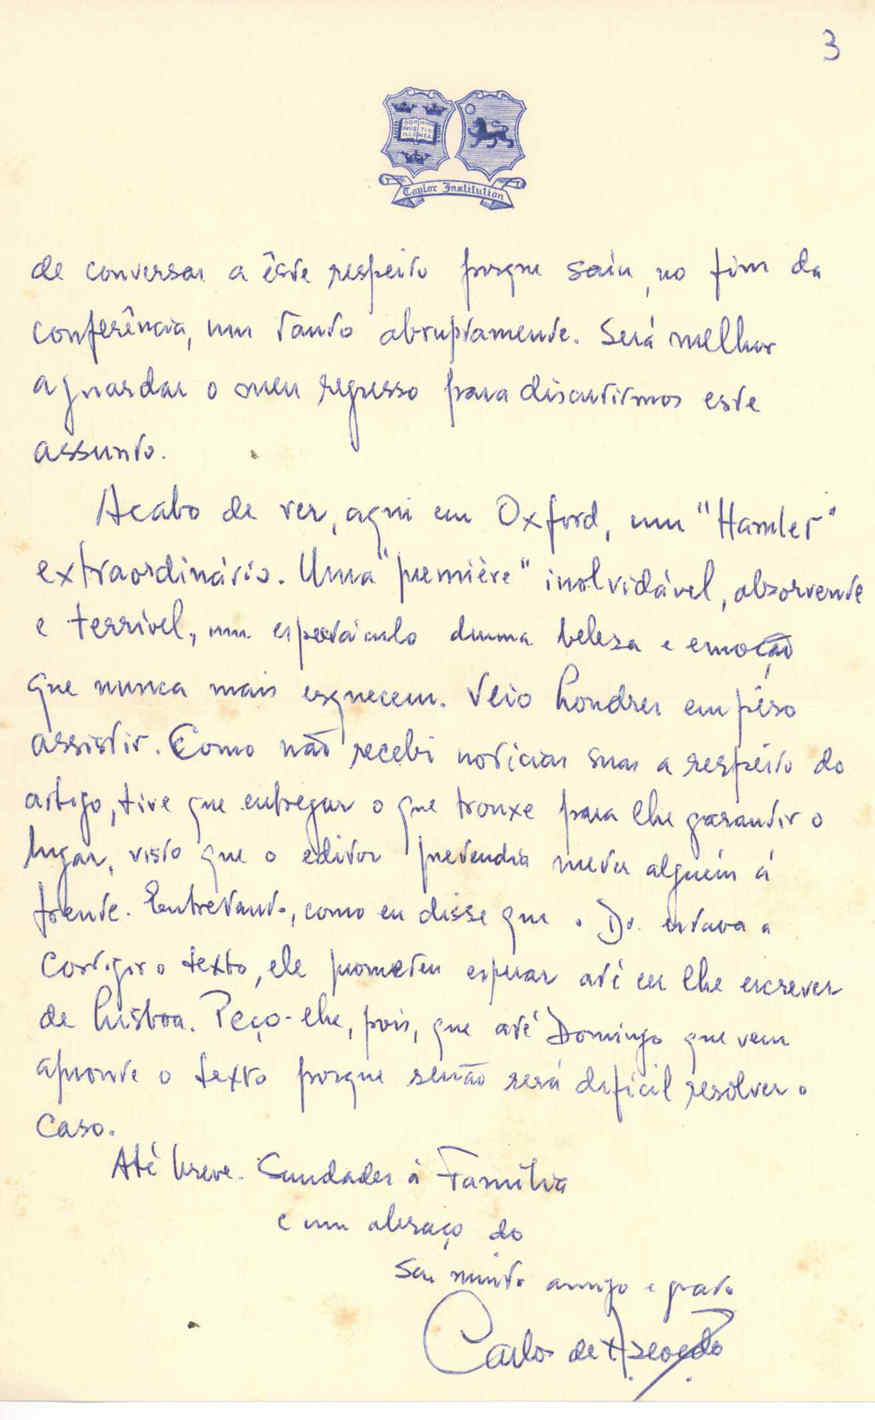 3
DOMI MINA
NUS TIO
ILLU MEA
Taylor Institution
de conversar a êste respeito porque saiu, no fim da
conferência, um tanto abruptamente. Será melhor
aguardar o meu regresso para discutirmos este
assunto.
Acabo de ver, aqui em Oxford, um "Hamlet"
extraordinário. Uma "première" inolvidável, absorvente
e terrível, um espectáculo duma beleza e emoção
que nunca mais esquecem. Veio Londres em pêso
assistir. Como não recebi notícias suas a respeito do
artigo, tive que entregar o que trouxe para lhe garantir o
lugar, visto que o editor pretendia meter alguém à
frente. Entretanto, como eu disse que o Dr. estava a
corrigir o texto, ele prometeu esperar até eu lhe escrever
de Lisboa. Peço-lhe, pois, que até Domingo que vem
apronte o texto porque senão será difícil resolver o
caso.
Até breve. Saudades à Família
e um abraço do
seu muito amigo e grato
Carlos de Azevedo